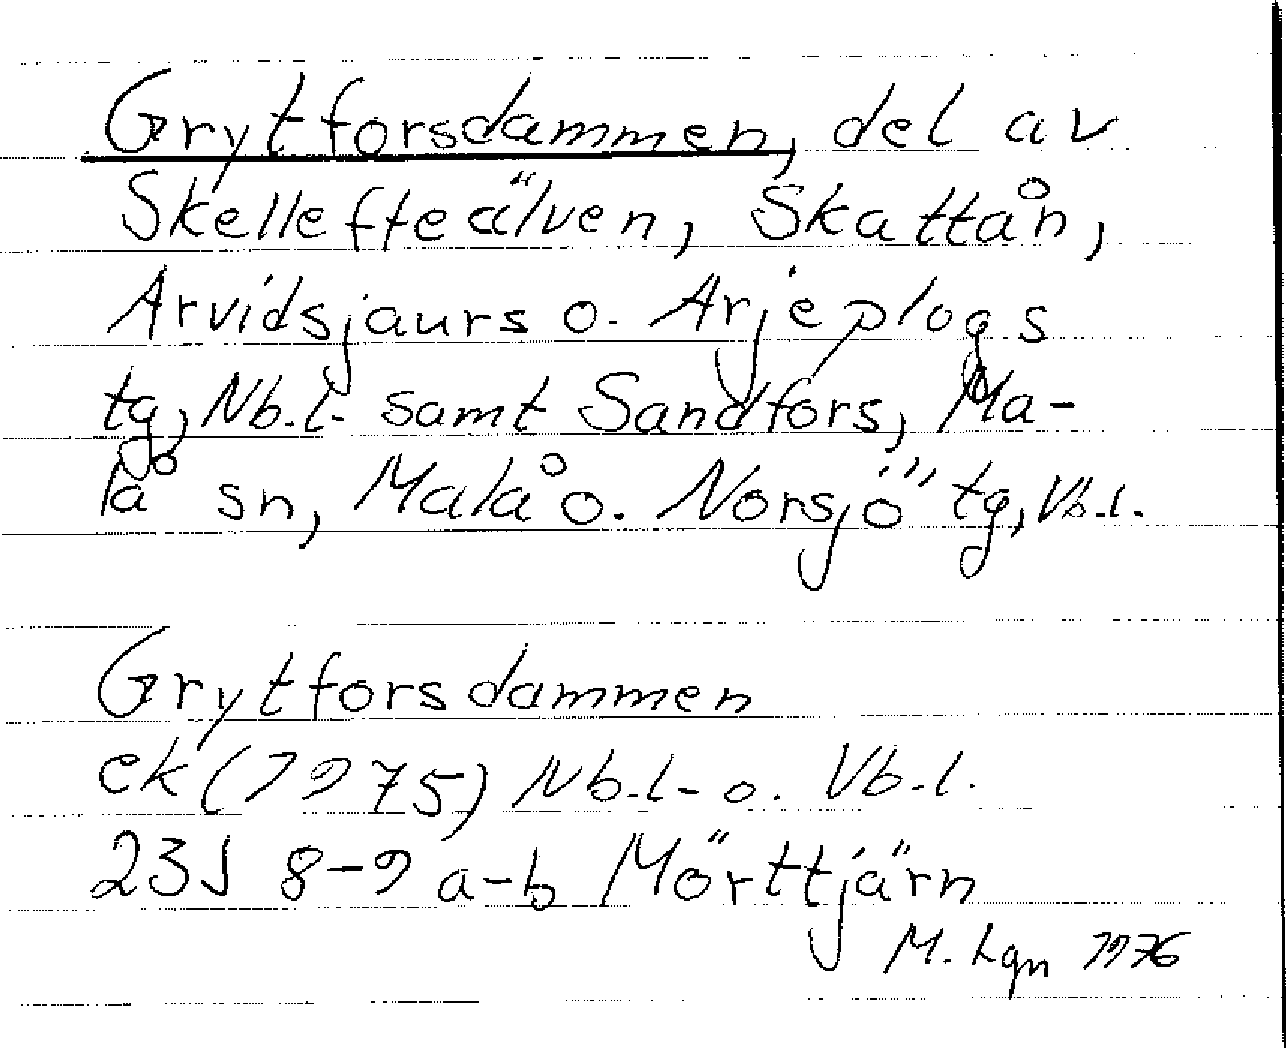 Grytforsdammen, del av
Skellefteälven, Skattån,
Arvidsjaurs o. Arjeplogs
tg, Nb.l. samt Sandfors, Ma-
lå sn, Malå o. Norsjö tg, Vb.l.
Grytforsdammen
ek (1975) Nb.l. o. Vb.l.
23J 8-9 a-b Mörttjärn
M. Lgn 1976